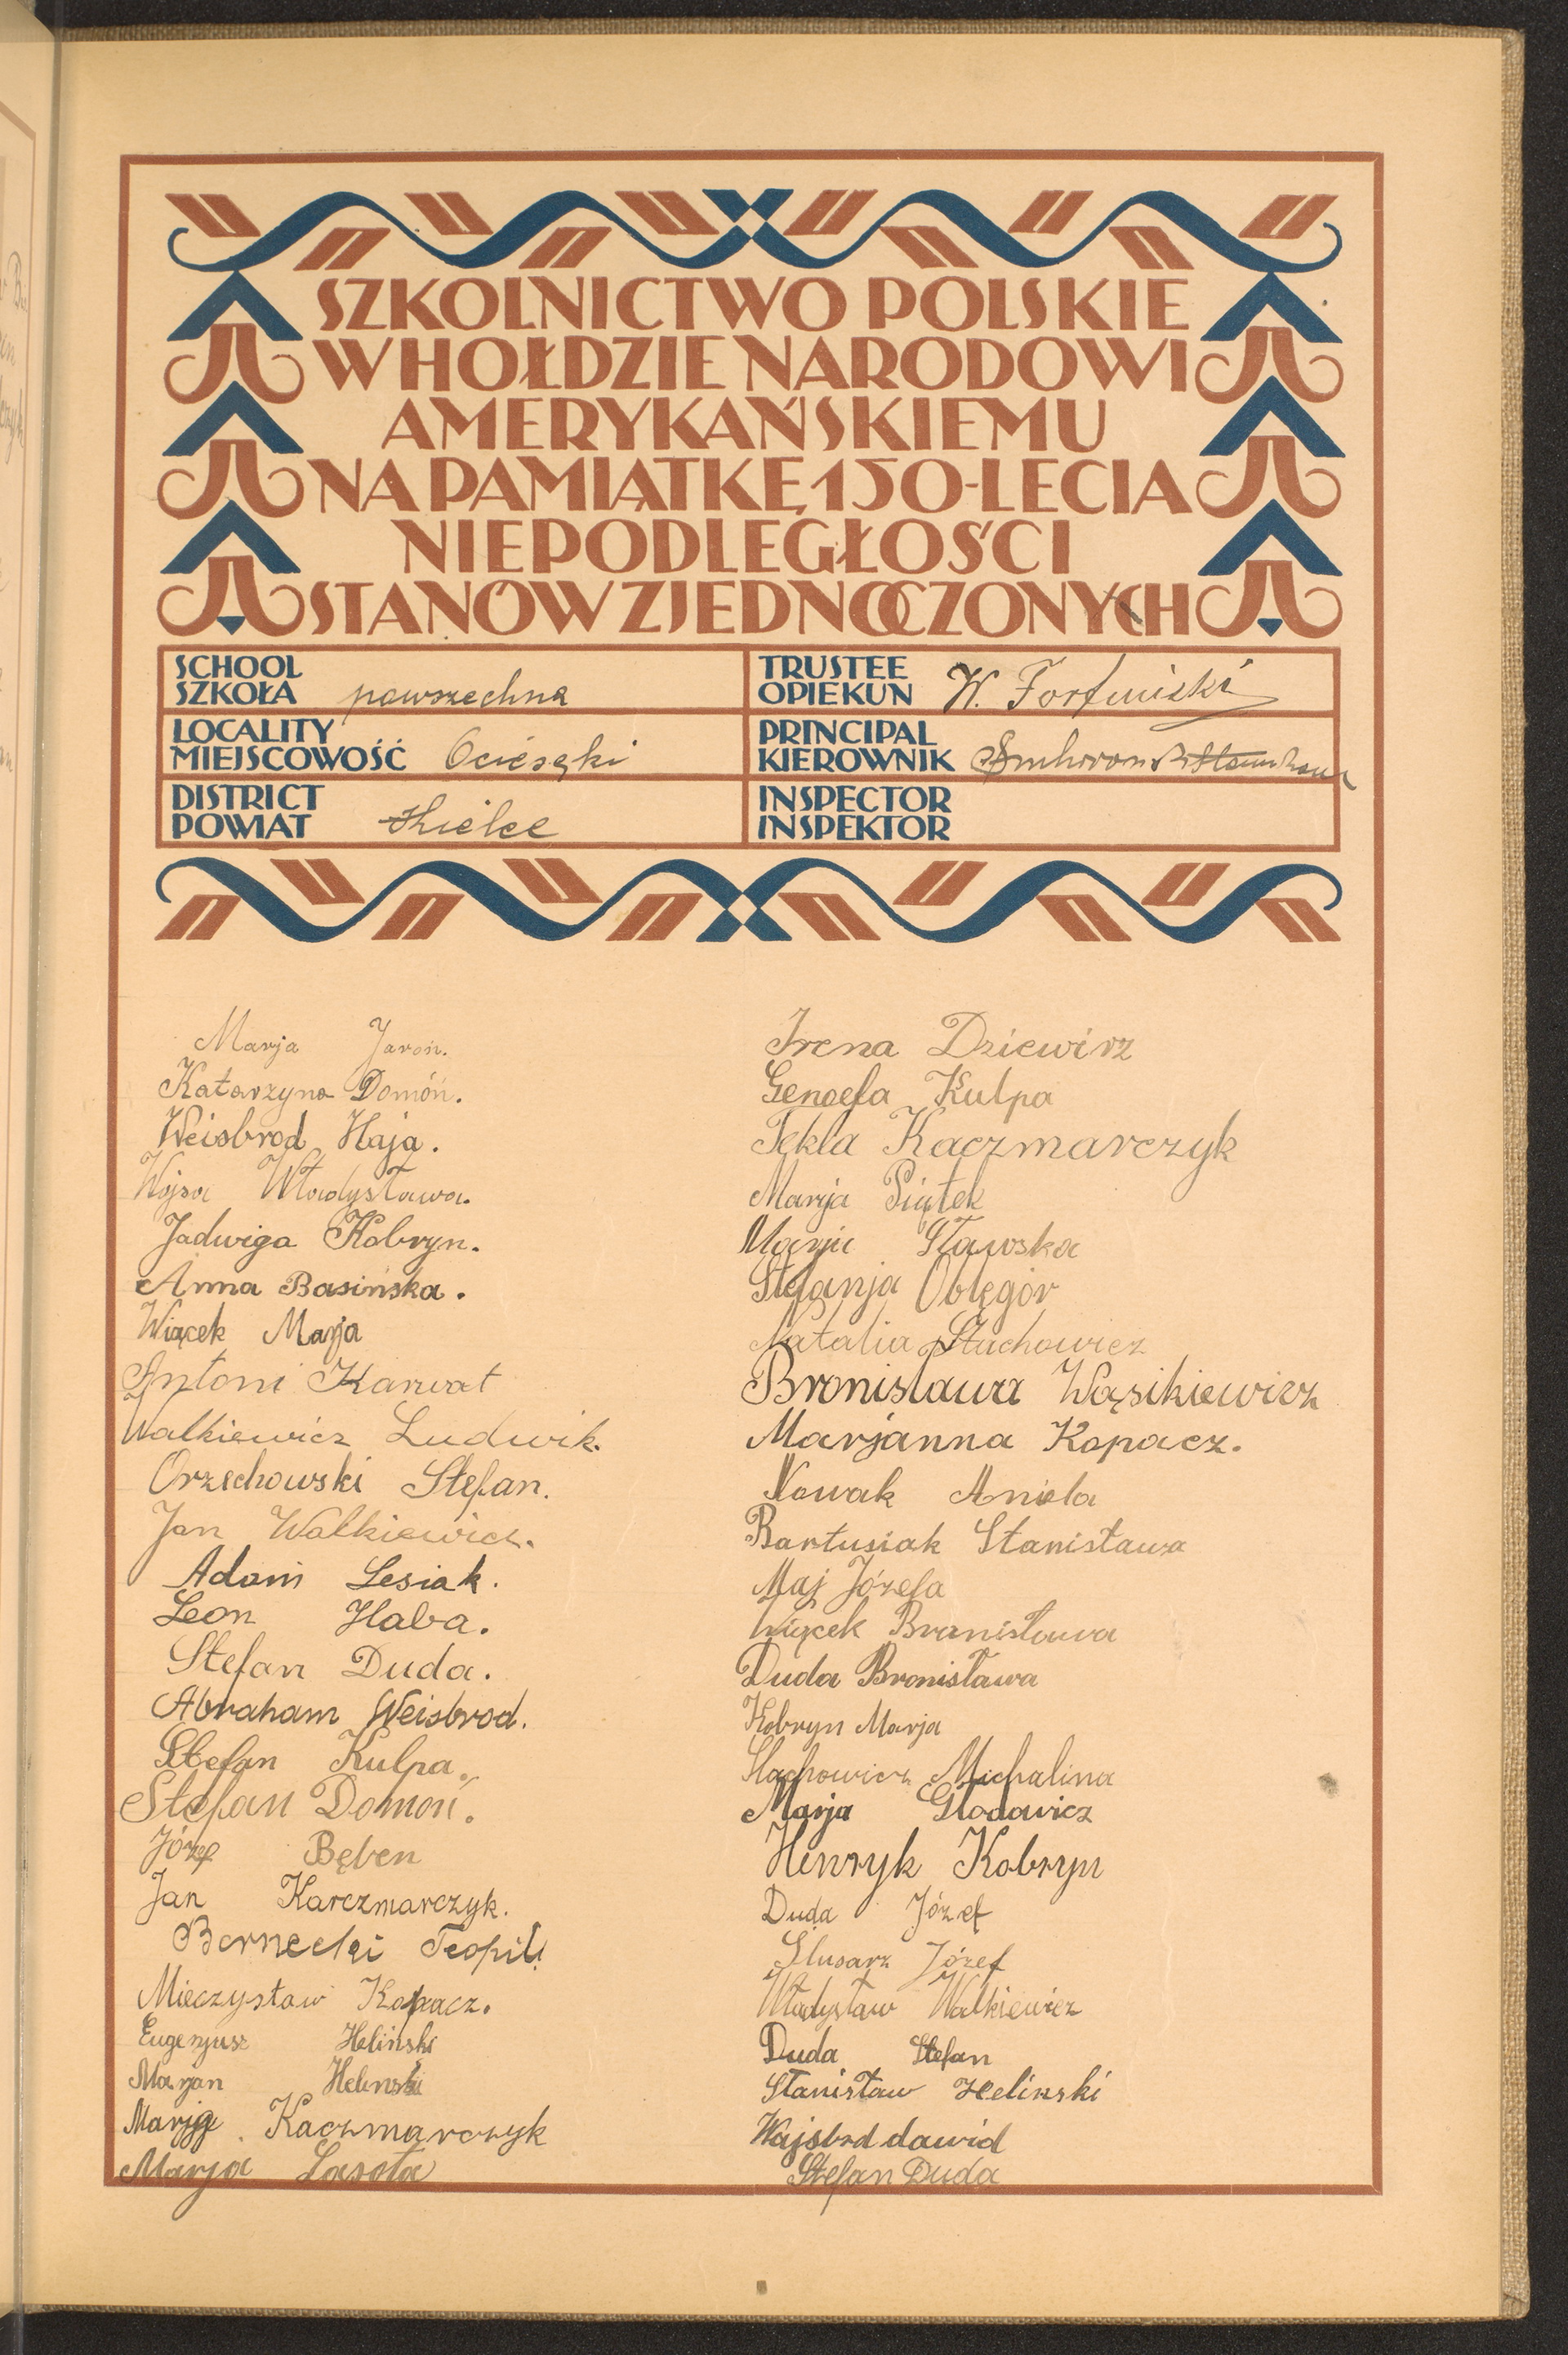 SZKOLNICTWO POLSKIE
W HOŁDZIE NARODOWI
AMERYKAŃSKIEMU
NA PAMIĄTKĘ 150-LECIA
NIEPODLEGŁOŚCI
STANÓW ZJEDNOCZONYCH
SCHOOL
SZKOŁA powszechna
LOCALITY
MIEJSCOWOŚĆ Ociesęki
DISTRICT
POWIAT Kielce
TRUSTEE
OPIEKUN W.
PRINCIPAL
KIEROWNIK
INSPECTOR
INSPEKTOR
Marja Jaroń.
Katarzyna Domóń.
Weisbrod Haja.
Wojsa Władysława.
Jadwiga Kobryn.
Anna Basińska.
Wiącek Marja
Antoni Karwat
Walkiewicz Ludwik.
Orzechowski Stefan.
Jan Walkiewicz.
Adam Lesiak.
Leon Haba.
Stefan Duda.
Abraham Weisbrod.
Stefan Kulpa.
Stefan Domoń.
Józef Bęben
Jan Karczmarczyk.
Bernecki Teopil.
Mieczysław Kopacz.
Eugenjusz Heliński
Marjan Helinski
Marja Kaczmarczyk
Marja Lasota
Irena Dziewirz
Genoefa Kulpa
Tekla Kaczmarczyk
Marja Piątek
Marja Sławska
Stefanja Oblęgór
Natalia Stachowicz
Bronisława Wąsikiewicz
Marjanna Kopacz.
Nowak Aniela
Bartusiak Stanisława
Maj Józefa
Wiącek Bronisława
Duda Bronisława
Kobryn Marja
Stachowicz Michalina
Marja Głodowicz
Henryk Kobryn
Duda Józef
Slusarz Józef
Władysław Walkiewicz
Duda Stefan
Stanisław Helinski
Wajsbrd dawid
Stefan Duda